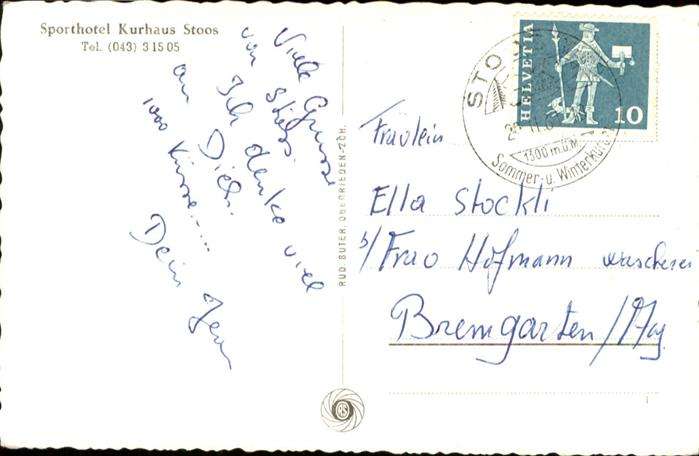 Sporthotel Kurhaus Stoos
Tel. (043) 3 15 05
Viele Grüsse
von Stoss.
Ich denke viel
an Dich.
1000 Küsse....
Dein Jean
RUD. SUTER, OBERRIEDEN-ZCH.
HELVETIA
10
STOOS
1300 m.ü.M.
Sommer- u. Winterkurort
Fräulein
Ella Stöckli
b/Frau Hofmann wäscherei
Bremgarten/Aag